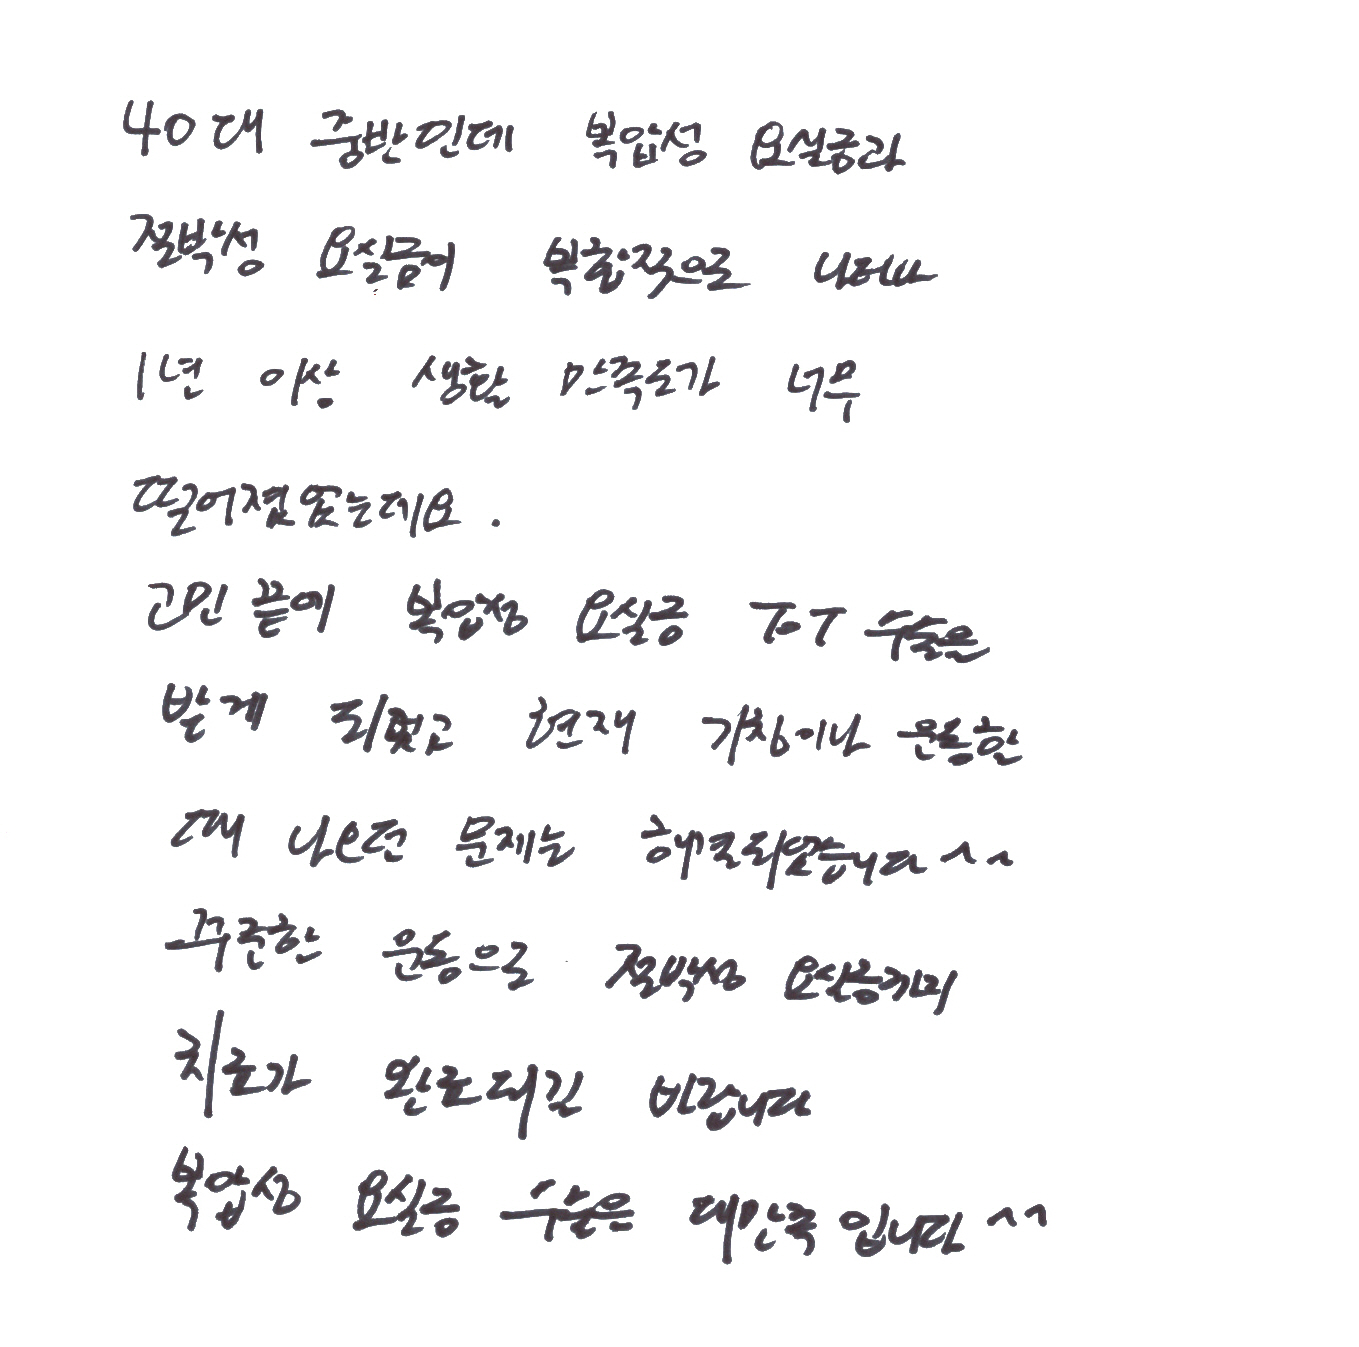 40대 중반인데 복압성 요실금과
절박성 요실금이 복합적으로 나타나
1년 이상 생활 만족도가 너무
떨어졌었는데요.
고민 끝에 복압성 요실금 TOT 수술을
받게 되었고 현재 기침이나 운동할
때 나오던 문제는 해결되었습니다^^
꾸준한 운동으로 절박성 요실금까지
치료가 완료되길 바랍니다
복압성 요실금 수술은 대만족입니다^^